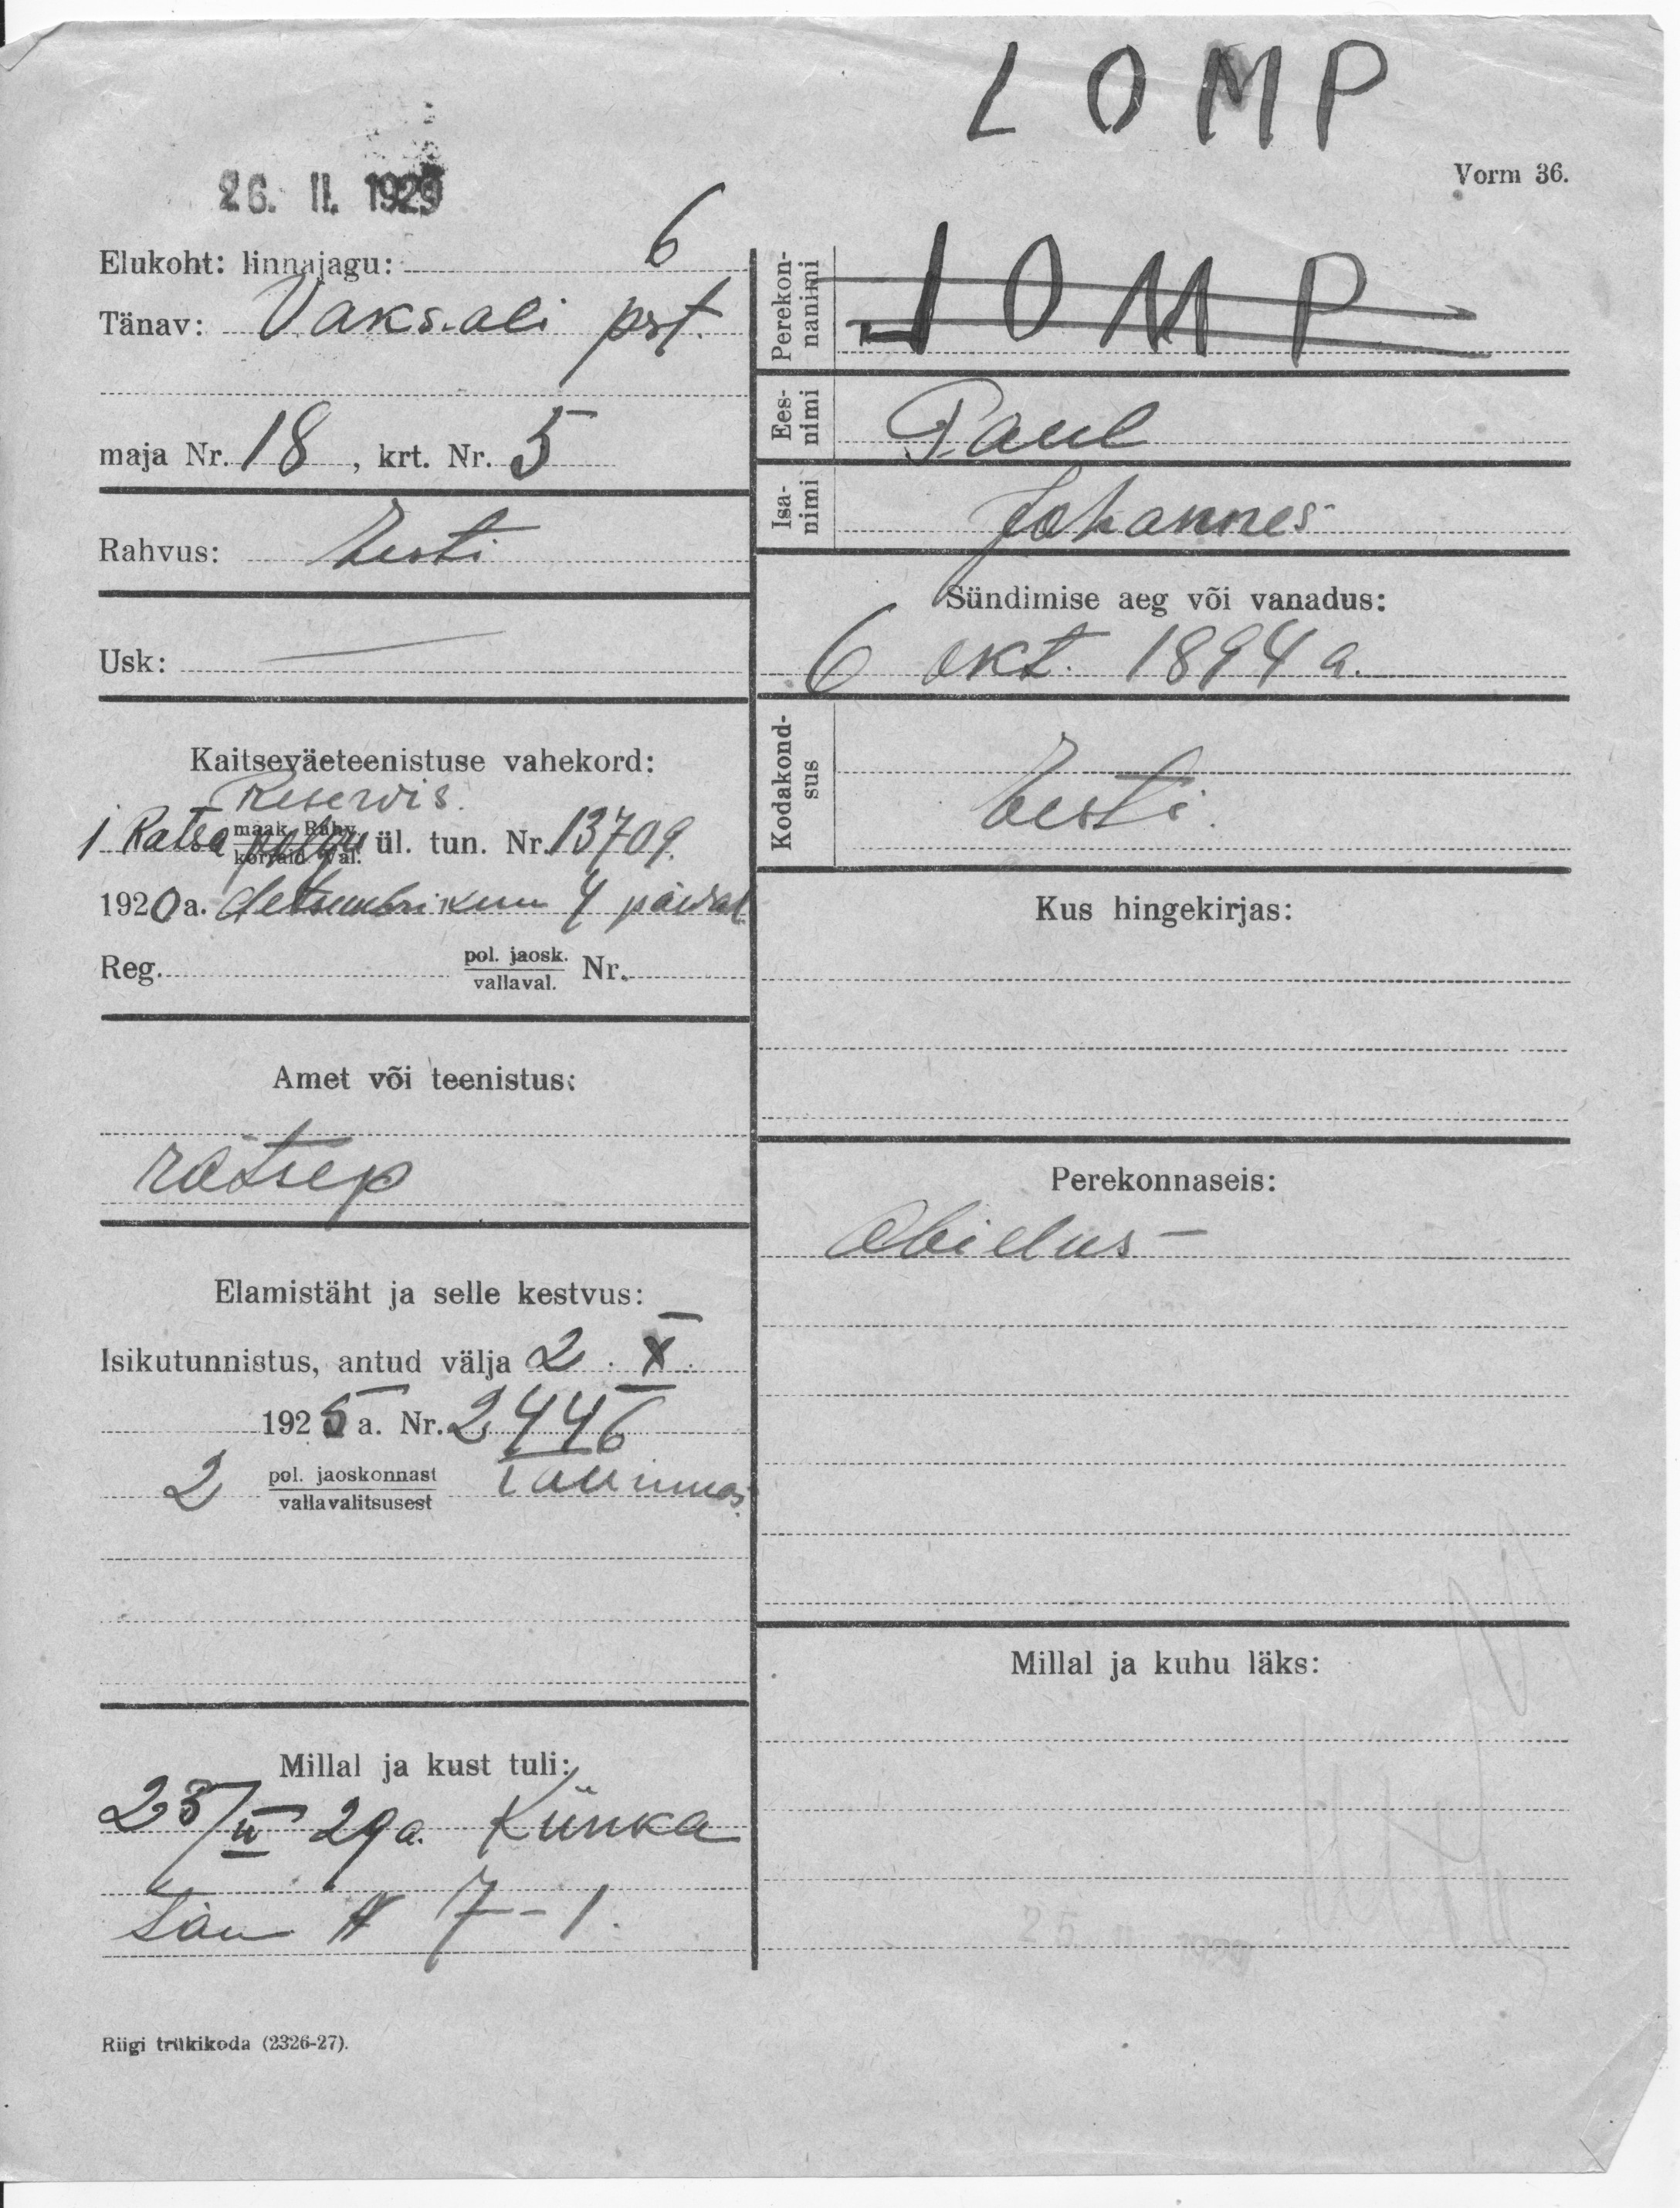 LOMP
Vorm 36.
26. II. 1929
Elukoht: linnajagu: 6
Tänav: Vaksali pst.
maja Nr. 18, krt. Nr. 5
Rahvus: Eesti
Usk: —
Kaitseväeteenistuse vahekord:
Reservis.
1 Ratsa polgu maak. Rahv. ül. tun. Nr. 13709.
1920 a. detsembrikuu 4 päeval
Reg. pol. jaosk. Nr.
vallaval.
Amet või teenistus:
rätsep
Elamistäht ja selle kestvus:
Isikutunnistus, antud välja 2. X.
1925 a. Nr. 2446
2 pol. jaoskonnast Tallinnas
vallavalitsusest
Millal ja kust tuli:
25/II 29 a. Küüka
tän № 7-1.
Riigi trükikoda (2326-27).
Perekon-
nanimi
LOMP
Ees-
nimi
Paul
Isa-
nimi
Johannes
Sündimise aeg või vanadus:
6 okt. 1894 a.
Kodakond-
sus
Eesti.
Kus hingekirjas:
Perekonnaseis:
Abielus
Millal ja kuhu läks: